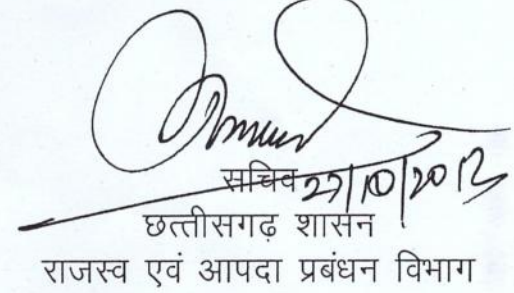 सचिव 27/10/2012
छत्तीसगढ़ शासन
राजस्व एवं आपदा प्रबंधन विभाग